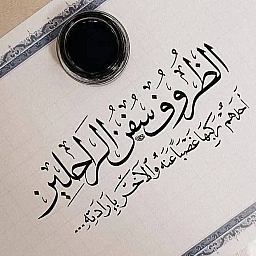 الظروف سفن الراحلين
أحدهم يركبها غصباً عنه والآخر بإرادته...